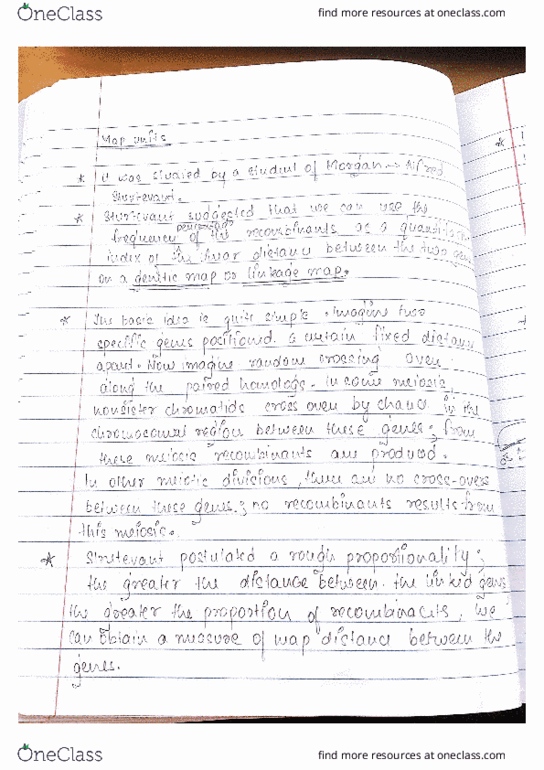 OneClass
find more resources at oneclass.com
Map units
* It was studied by a student of Morgan - Alfred
Sturtevant.
* Sturtevant suggested that we can use the
percentage
frequency of the recombinants as a quantitative
index of the linear distance between the two genes
on a genetic map or linkage map.
* The basic idea is quite simple. Imagine two
specific genes positioned a certain fixed distance
apart. Now imagine random crossing over
along the paired homologs. In some meiosis,
nonsister chromatids cross over by chance in the
chromosomal region between these genes; from
these meiosis recombinants are produced.
In other meiotic divisions, there are no cross-overs
between these genes; no recombinants results from
this meiosis.
* Sturtevant postulated a rough proportionality:
the greater the distance between the linked genes
the greater the proportion of recombinants, we
can obtain a measure of map distance between the
genes.
OneClass
find more resources at oneclass.com